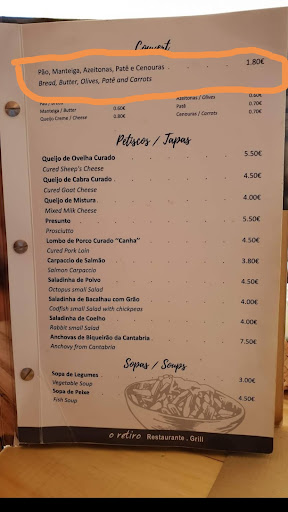 Couvert
Pão, Manteiga, Azeitonas, Patê e Cenouras . . . . . . . 1.80€
Bread, Butter, Olives, Patê and Carrots
Pão / Bread Azeitonas / Olives 0.60€
Manteiga / Butter 0.60€ Patê 0.70€
Queijo Creme / Cheese 0.80€ Cenouras / Carrots 0.70€
Petiscos / Tapas
Queijo de Ovelha Curado 5.50€
Cured Sheep's Cheese
Queijo de Cabra Curado 4.50€
Cured Goat Cheese
Queijo de Mistura 4.00€
Mixed Milk Cheese
Presunto 5.50€
Prosciutto
Lombo de Porco Curado "Canha" 4.50€
Cured Pork Loin
Carpaccio de Salmão 3.80€
Salmon Carpaccio
Saladinha de Polvo 4.50€
Octopus small Salad
Saladinha de Bacalhau com Grão 4.00€
Codfish small Salad with chickpeas
Saladinha de Coelho 4.00€
Rabbit small Salad
Anchovas de Biqueirão da Cantabria 7.50€
Anchovy from Cantabria
Sopas / Soups
Sopa de Legumes 3.00€
Vegetable Soup
Sopa de Peixe 4.50€
Fish Soup
o retiro Restaurante . Grill